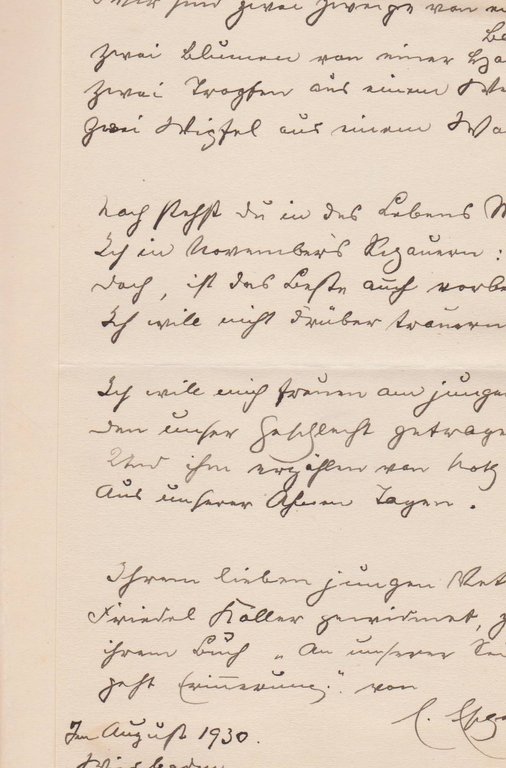 Wir sind zwei Zweige von
zwei Blumen von einer
zwei Tropfen aus einem
Zwei Wipfel aus einem
Noch stehst du in des Lebens
Ich in Novembers Schauern:
Doch, ist das Beste auch
Ich will nicht drüber trauern
Ich will mich freuen am
Den unser Geschlecht
Und ihm erzählen von
Aus unserer Ahnen Tagen.
Ihrem lieben jungen
Friedel Koller gewidmet,
ihrem Buch „An unserer
geht Erinnerung." von
Im August 1930.
Wiesbaden